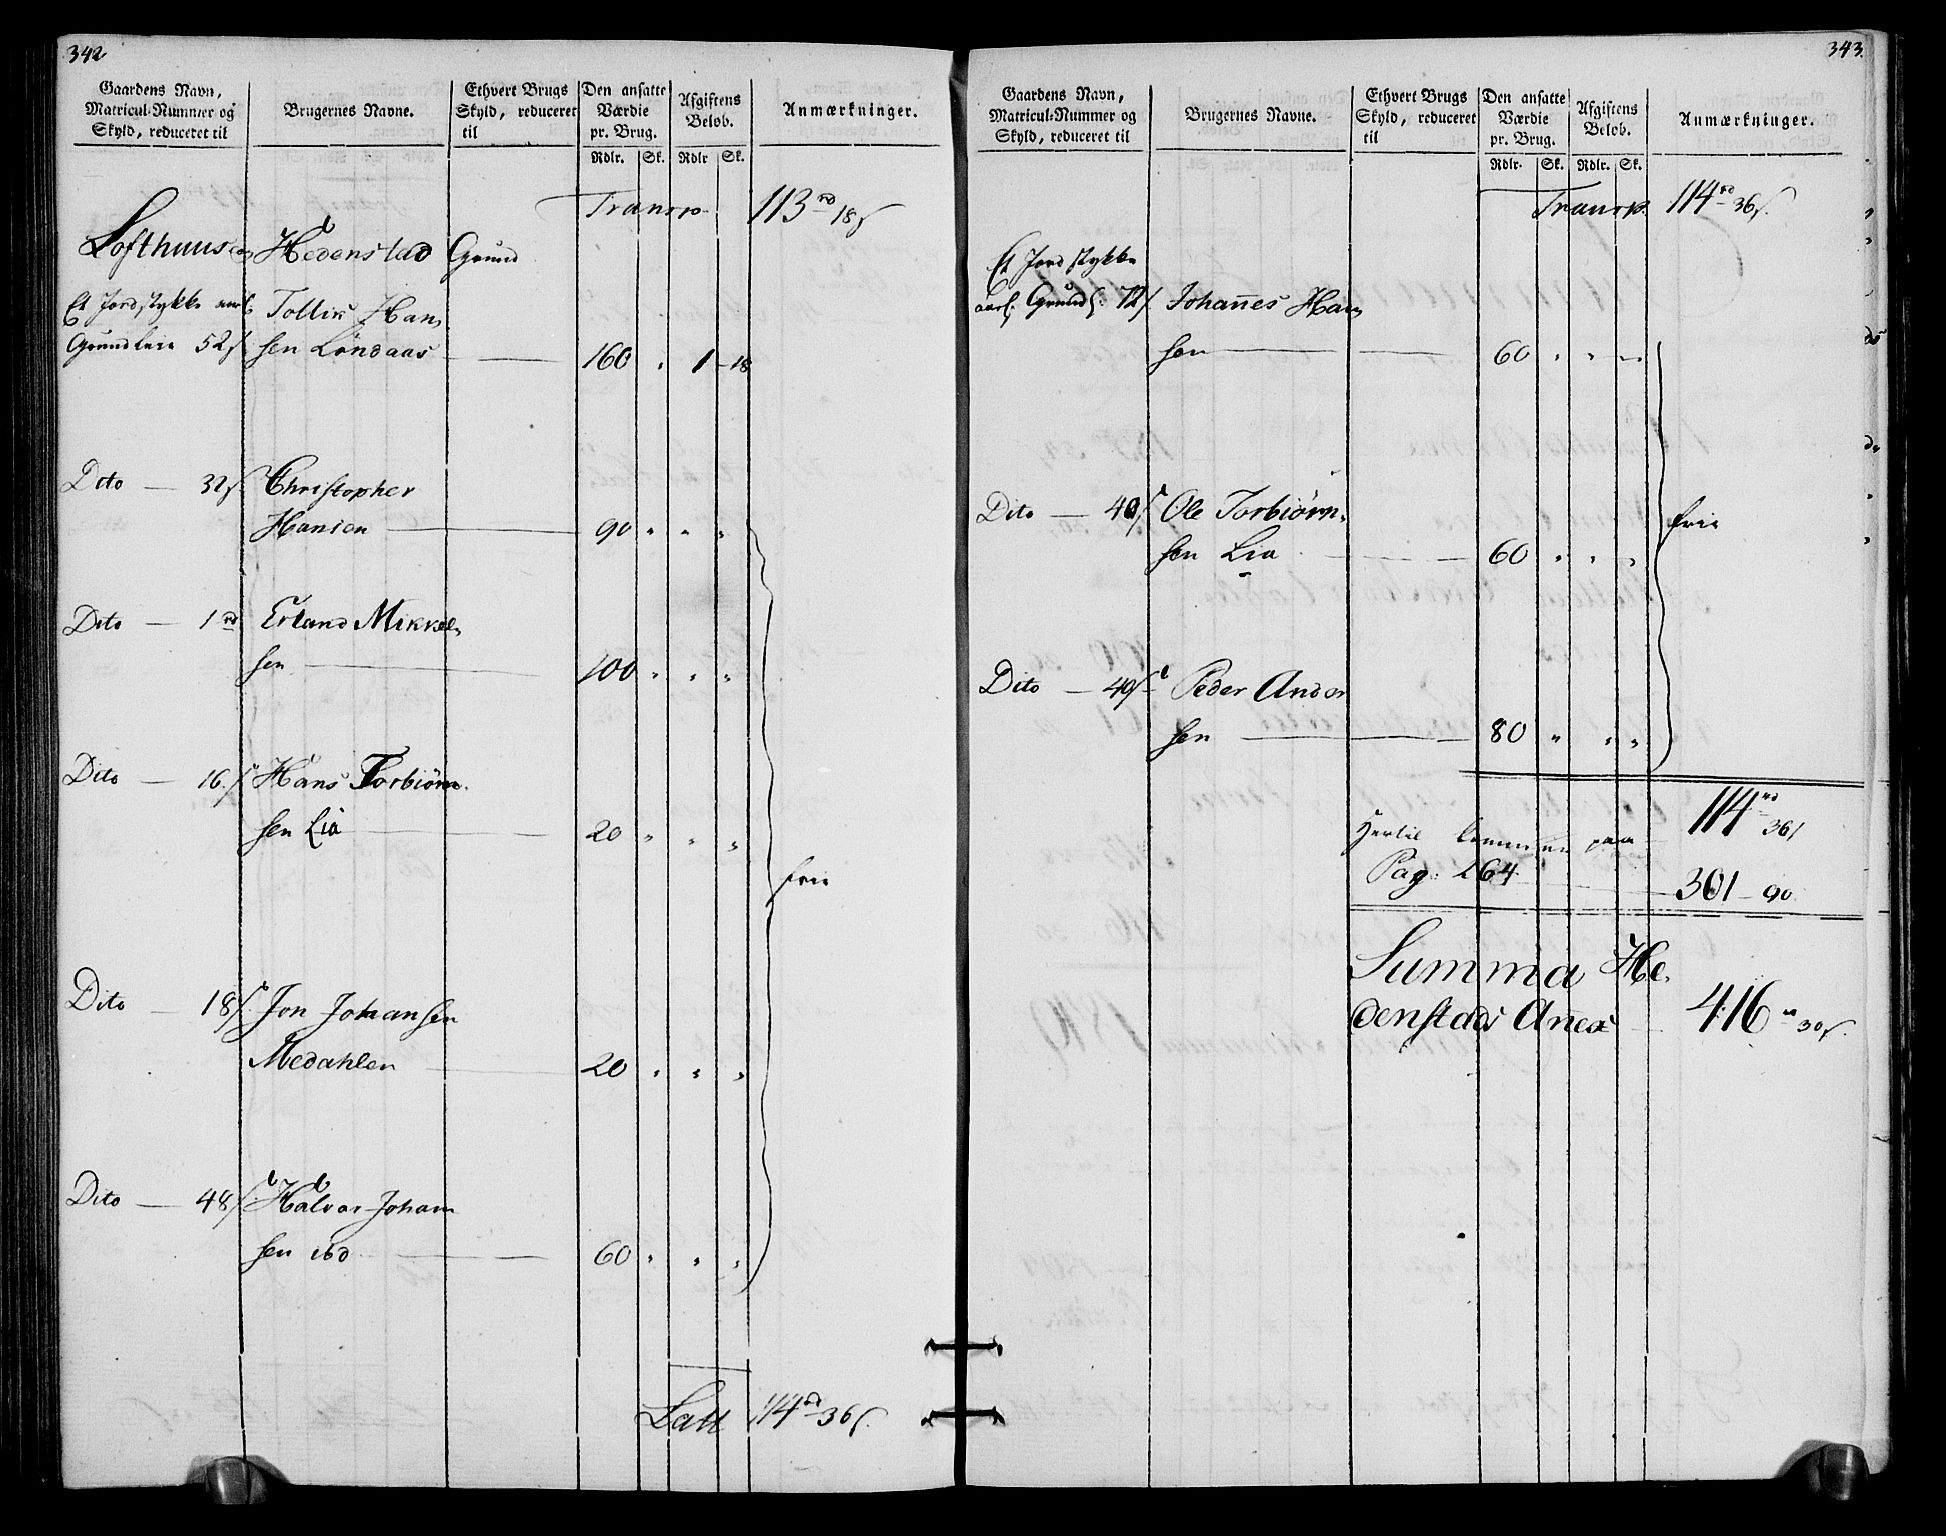 342
Gaardens Navn,
Matricul-Nummer og
Skyld, reduceret til
Brugernes Navne.
Ethvert Brugs
Skyld, reduceret
til
Den ansatte
Værdie
pr. Brug.
Afgiftens
Beløb.
Anmærkninger.
Rdlr. Sk. Rdlr Sk.
Transp. 113 rd 18 s
Lofthuus Hedenstad Grund
Et Jordstykke aarl.
Grundleie 52 s
Han,
sen Londaas 160 " 1 - 18
Dito — 32 s Christopher
Hansen 90 " " "
Dito — 1 rd Erland Mikkel,
sen 100 " " "
Dito — 16 s Hans Torbiørn,
sen Lia 20 " " "
frie
Dito — 18 s Jon Johansen
Medahlen 20 " " "
Dito — 48 s Halvor Johan
sen ibd 60 " " "
Latt 114 rd 36 s.
343.
Gaardens Navn,
Matricul-Nummer og
Skyld, reduceret til
Brugernes Navne.
Ethvert Brugs
Skyld, reduceret
til
Den ansatte
Værdie
pr. Brug.
Afgiftens
Beløb.
Anmærkninger.
Rdlr. Sk. Rdlr. Sk.
Transp. 114 rd 36 s.
Et Jordstykke
aarl. Grundl: 72 s Johannes Han,
sen 60 " " "
Dito — 40 s Ole Torbiørn,
sen Lia 60 " " "
frie
Dito — 40 s Peder Ander
sen 80 " " "
114 rd 36 s
Hertil kommen paa
Pag: 264 301 - 90
Summa He,
denstads Anex 416 rd 30 s.